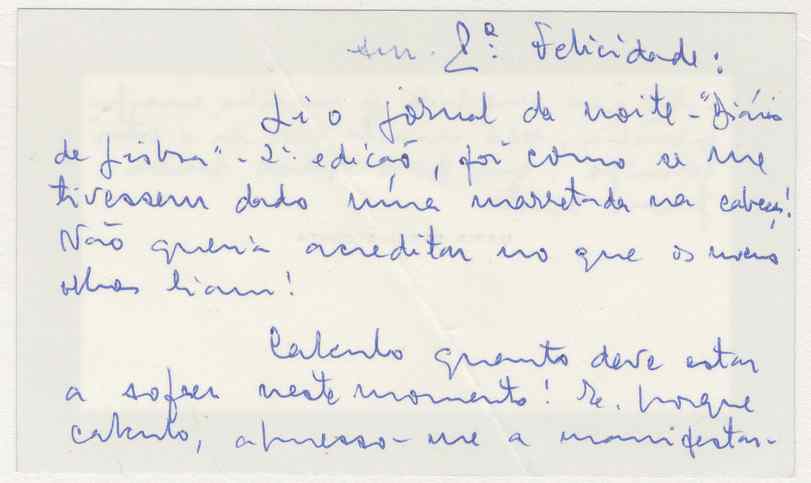 Sra. D.ª Felicidade:
Li o jornal da noite - "Diário
de Lisboa" - 2ª edição, foi como se me
tivessem dado uma marretada na cabeça!
Não queria acreditar no que os meus
olhos liam!
Calculo quanto deve estar
a sofrer neste momento! E, porque
calculo, apresso-me a manifestar-